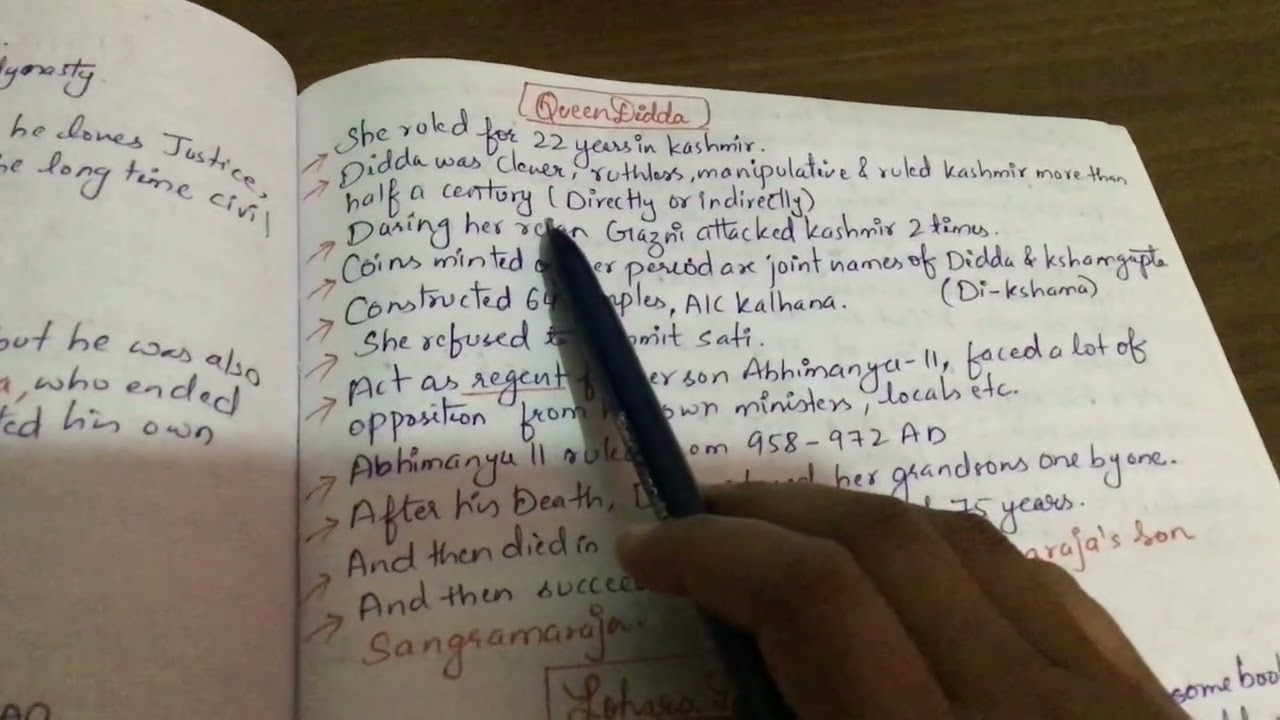 dynasty.
he loves Justice,
he long time civil
but he was also
a, who ended
ted his own
AD
Queen Didda
She ruled for 22 years in Kashmir.
Didda was clever, ruthless, manipulative & ruled Kashmir more than
half a century (Directly or indirectly)
During her Gazni attacked Kashmir 2 times.
Coins minted period are joint names of Didda & Kshamgupta
(Di-kshama)
Constructed 64 A/C Kalhana.
She refused sati.
Act as regent son Abhimanyu-II, faced a lot of
opposition from own ministers, locals etc.
Abhimanyu II 958-972 AD
After his Death, her grandsons one by one.
And then died in 75 years.
And then son
Sangramaraja.
Lohara
some book